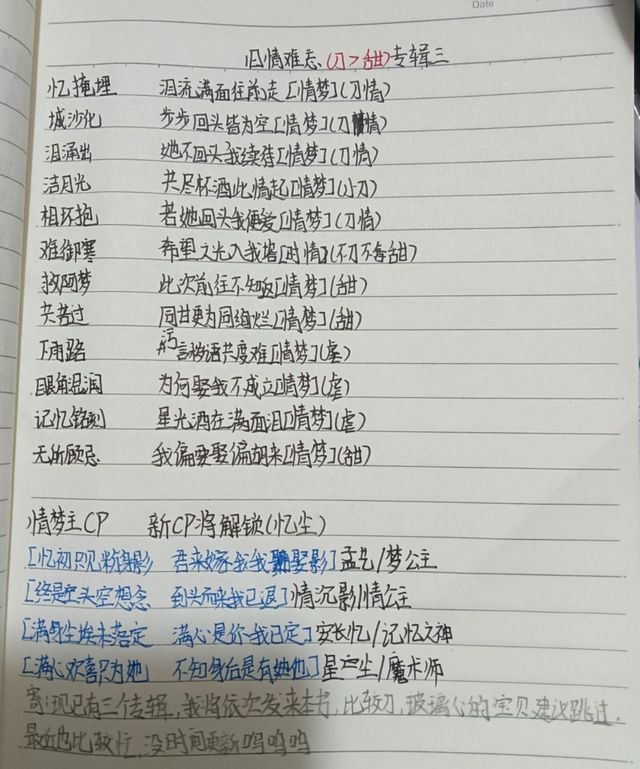 Date
旧情难忘、(刀>甜)专辑三
忆掩埋 泪流满面往前走[情梦](刀情)
城沙化 步步回头皆为空[情梦](刀情)
泪涌出 她不回头我续待[情梦](刀情)
洁月光 共尽杯酒此情起[情梦](小刀)
相环抱 若她回头我便爱[情梦](刀情)
难御寒 希里之光入我塔[时情](不刀不香甜)
救阿梦 此次前往不知返[情梦](甜)
共苦过 同甘更为同绚烂[情梦](甜)
下雨路 污言秽语共度难[情梦](虐)
眼角湿润 为何娶我不成立[情梦](虐)
记忆铭刻 星光洒在满面泪[情梦](虐)
无所顾忌 我偏要娶偏胡来[情梦](甜)
情梦主CP 新CP将解锁(忆尘)
[忆初只见粉身影 君来嫁我我娶影]孟艺/梦公主
[终是空头空想念 到头而来我已退]情沉影/情公主
[满身尘埃未落定 满心是你我已定]安长忆/记忆之神
[满心欢喜只为她 不知身后是有她也]星尘/魔术师
寄:现已有三个专辑,我将依次发来本书,比较刀,玻璃心的宝贝建议跳过,
最近也比较忙,没时间更新呜呜呜